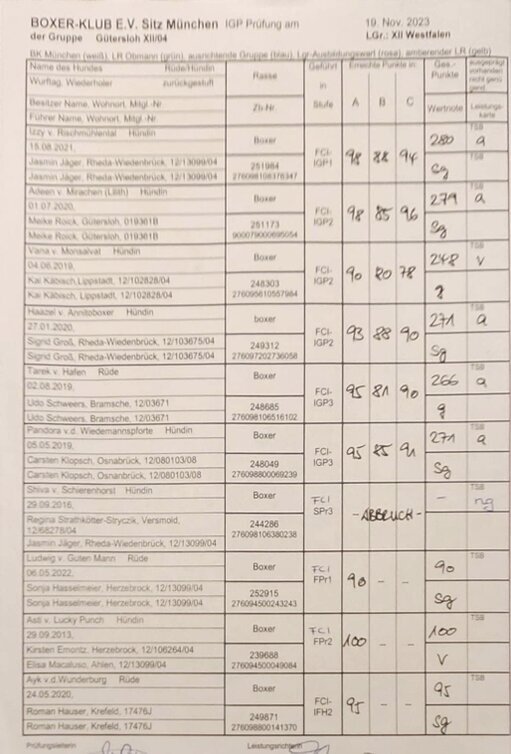 BOXER-KLUB E.V. Sitz München IGP Prüfung am 19. Nov. 2023
der Gruppe Gütersloh XII/04 LGr.: XII Westfalen
BK München (weiß), LR Obmann (grün), ausrichtende Gruppe (blau), Lgr-Ausbildungswart (rosa), amtierender LR (gelb)
Name des Hundes Rüde/Hündin Rasse Geführt in Stufe Erreichte Punkte in: Ges.-Punkte ausgeprägt vorhanden nicht genügend
Wurftag, Wiederholer zurückgestuft
Besitzer Name, Wohnort, Mitgl.-Nr. Zb-Nr. A B C Wertnote Leistungskarte
Führer Name, Wohnort, Mitgl.-Nr.
Izzy v. Rischmühlental Hündin Boxer FCI-IGP1 98 88 94 280 TSB a
15.08.2021,
Jasmin Jäger, Rheda-Wiedenbrück, 12/13099/04 251984 Sg
Jasmin Jäger, Rheda-Wiedenbrück, 12/13099/04 276098108376347
Adeen v. Mirachen (Lilith) Hündin Boxer FCI-IGP2 98 85 96 279 TSB a
01.07.2020,
Meike Roick, Gütersloh, 019361B 251173 Sg
Meike Roick, Gütersloh, 019361B 900079000695054
Vana v. Monsalvat Hündin Boxer FCI-IGP2 90 80 78 248 TSB v
04.06.2019,
Kai Käbisch, Lippstadt, 12/102828/04 248303 g
Kai Käbisch, Lippstadt, 12/102828/04 276095610557984
Haazel v. Annitoboxer Hündin boxer FCI-IGP2 93 88 90 271 TSB a
27.01.2020,
Sigrid Groß, Rheda-Wiedenbrück, 12/103675/04 249312 Sg
Sigrid Groß, Rheda-Wiedenbrück, 12/103675/04 276097202736058
Tarek v. Hafen Rüde Boxer FCI-IGP3 95 81 90 266 TSB a
02.08.2019,
Udo Schweers, Bramsche, 12/03671 248685 g
Udo Schweers, Bramsche, 12/03671 276098106516102
Pandora v.d. Wiedemannspforte Hündin Boxer FCI-IGP3 95 85 91 271 TSB a
05.05.2019,
Carsten Klopsch, Osnabrück, 12/080103/08 248049 Sg
Carsten Klopsch, Osnabrück, 12/080103/08 276098800069239
Shiva v. Schierenhorst Hündin Boxer FCI SPr3 -ABBRUCH- - TSB ng
29.09.2016,
Regina Strathkötter-Stryczik, Versmold, 12/68278/04 244286
Jasmin Jäger, Rheda-Wiedenbrück, 12/13099/04 276098106380238
Ludwig v. Guten Mann Rüde Boxer FCI FPr1 90 - - 90 TSB
06.05.2022,
Sonja Hasselmeier, Herzebrock, 12/13099/04 252915 Sg
Sonja Hasselmeier, Herzebrock, 12/13099/04 276094500243243
Asti v. Lucky Punch Hündin Boxer FCI FPr2 100 - - 100 TSB
29.09.2013,
Kirsten Emontz, Herzebrock, 12/106264/04 239688 V
Elisa Macaluso, Ahlen, 12/13099/04 276094500049084
Ayk v.d.Wunderburg Rüde Boxer FCI-IFH2 95 - - 95 TSB
24.05.2020,
Roman Hauser, Krefeld, 17476J 249871 Sg
Roman Hauser, Krefeld, 17476J 276098800141370
Prüfungsleiterin Leistungsrichterin